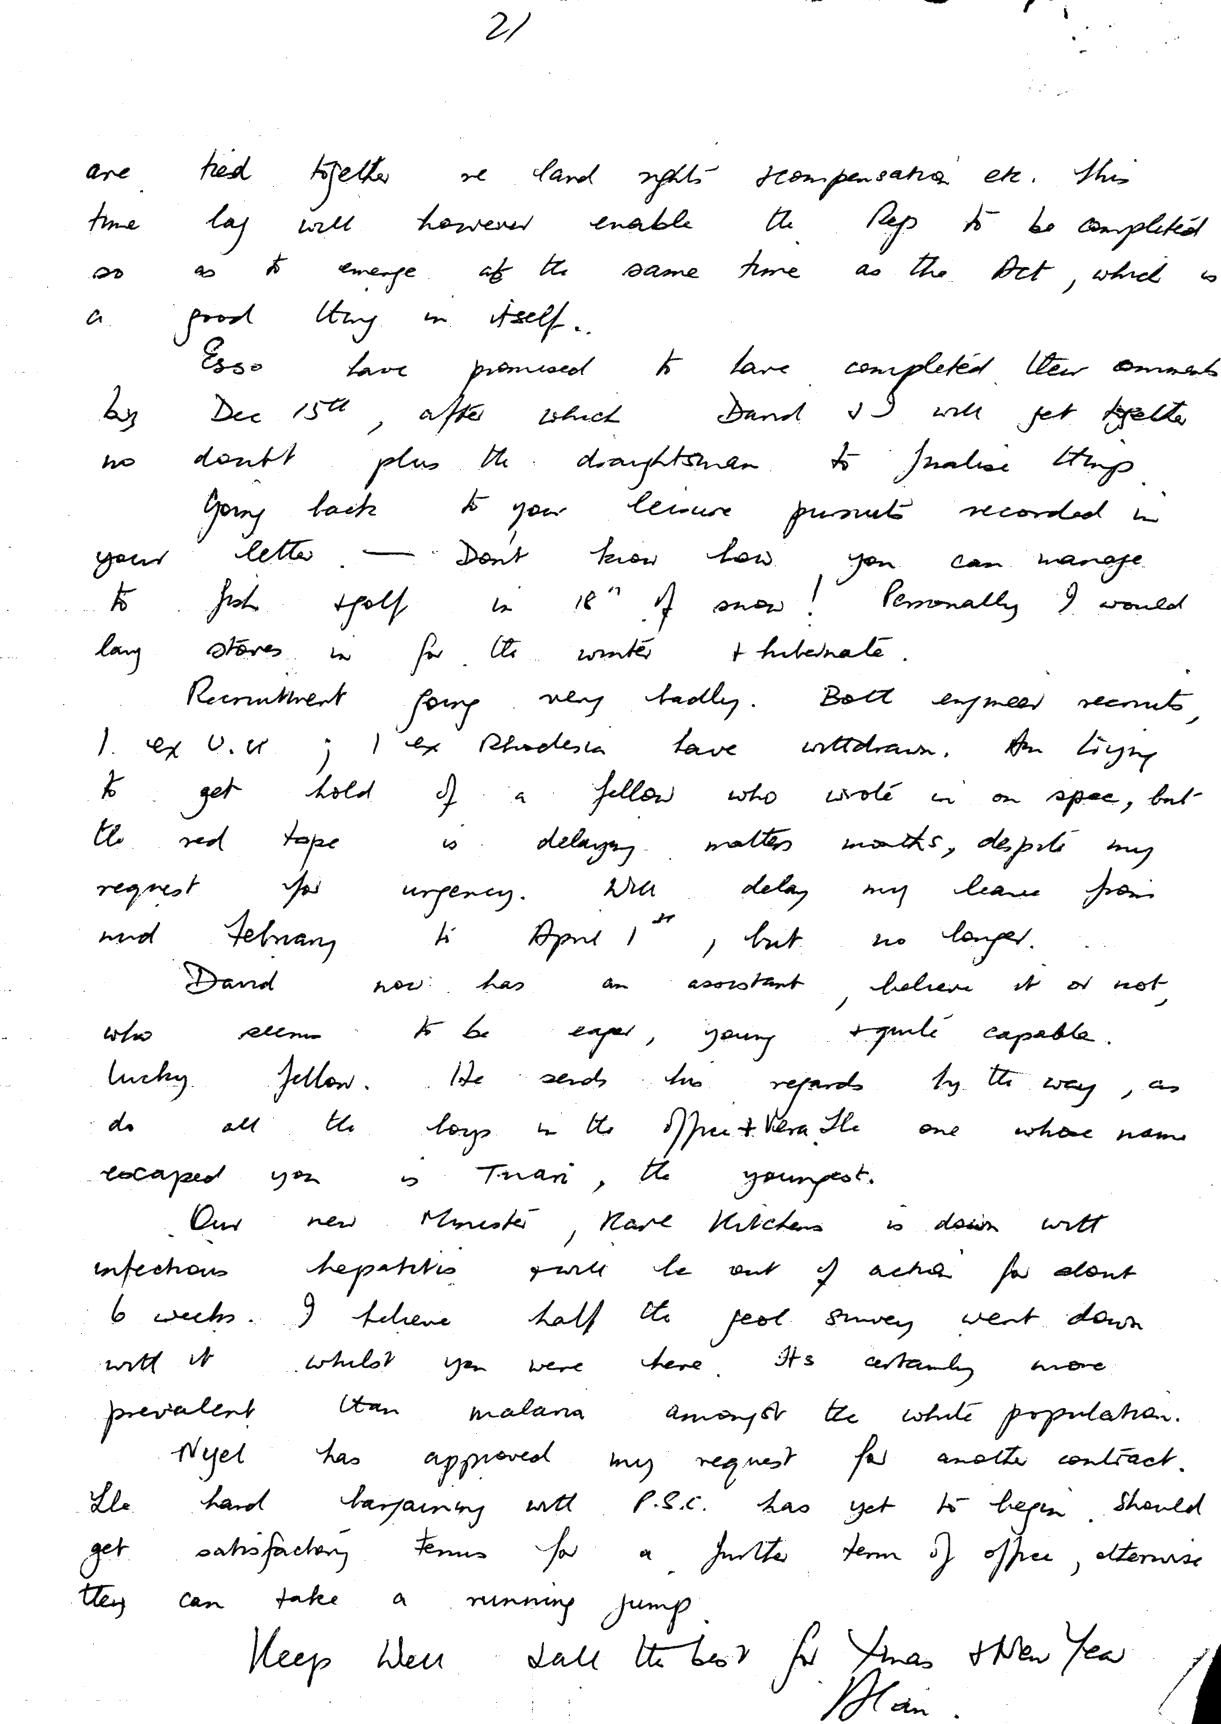 2/
are tied together re land rights + compensation etc. This
time lag will however enable the Regs to be completed
so as to emerge at the same time as the Act, which is
a good thing in itself.
Esso have promised to have completed their comments
by Dec 15th, after which David & I will get together
no doubt plus the draughtsman to finalise things.
Going back to your leisure pursuits recorded in
your letter. — Don't know how you can manage
to fish + golf in 18" of snow! Personally I would
lay stores in for the winter + hibernate.
Recruitment going very badly. Both engineer recruits,
1 ex U.K ; 1 ex Rhodesia have withdrawn. Am trying
to get hold of a fellow who wrote in on spec, but
the red tape is delaying matters months, despite my
request for urgency. Will delay my leave from
mid February to April 1st, but no longer.
David now has an assistant, believe it or not,
who seems to be eager, young + quite capable.
Lucky fellow. He sends his regards by the way, as
do all the boys in the office + Vera. The one whose name
escaped you is Tuari, the youngest.
Our new Minister, Karl Kitchens is down with
infectious hepatitis + will be out of action for about
6 weeks. I believe half the geol survey went down
with it whilst you were here. Its certainly more
prevalent than malaria amongst the white population.
Nyel has approved my request for another contract.
The hard bargaining with P.S.C. has yet to begin. Should
get satisfactory terms for a further term of office, otherwise
they can take a running jump.
Keep Well + all the best for Xmas + New Year
Alan.